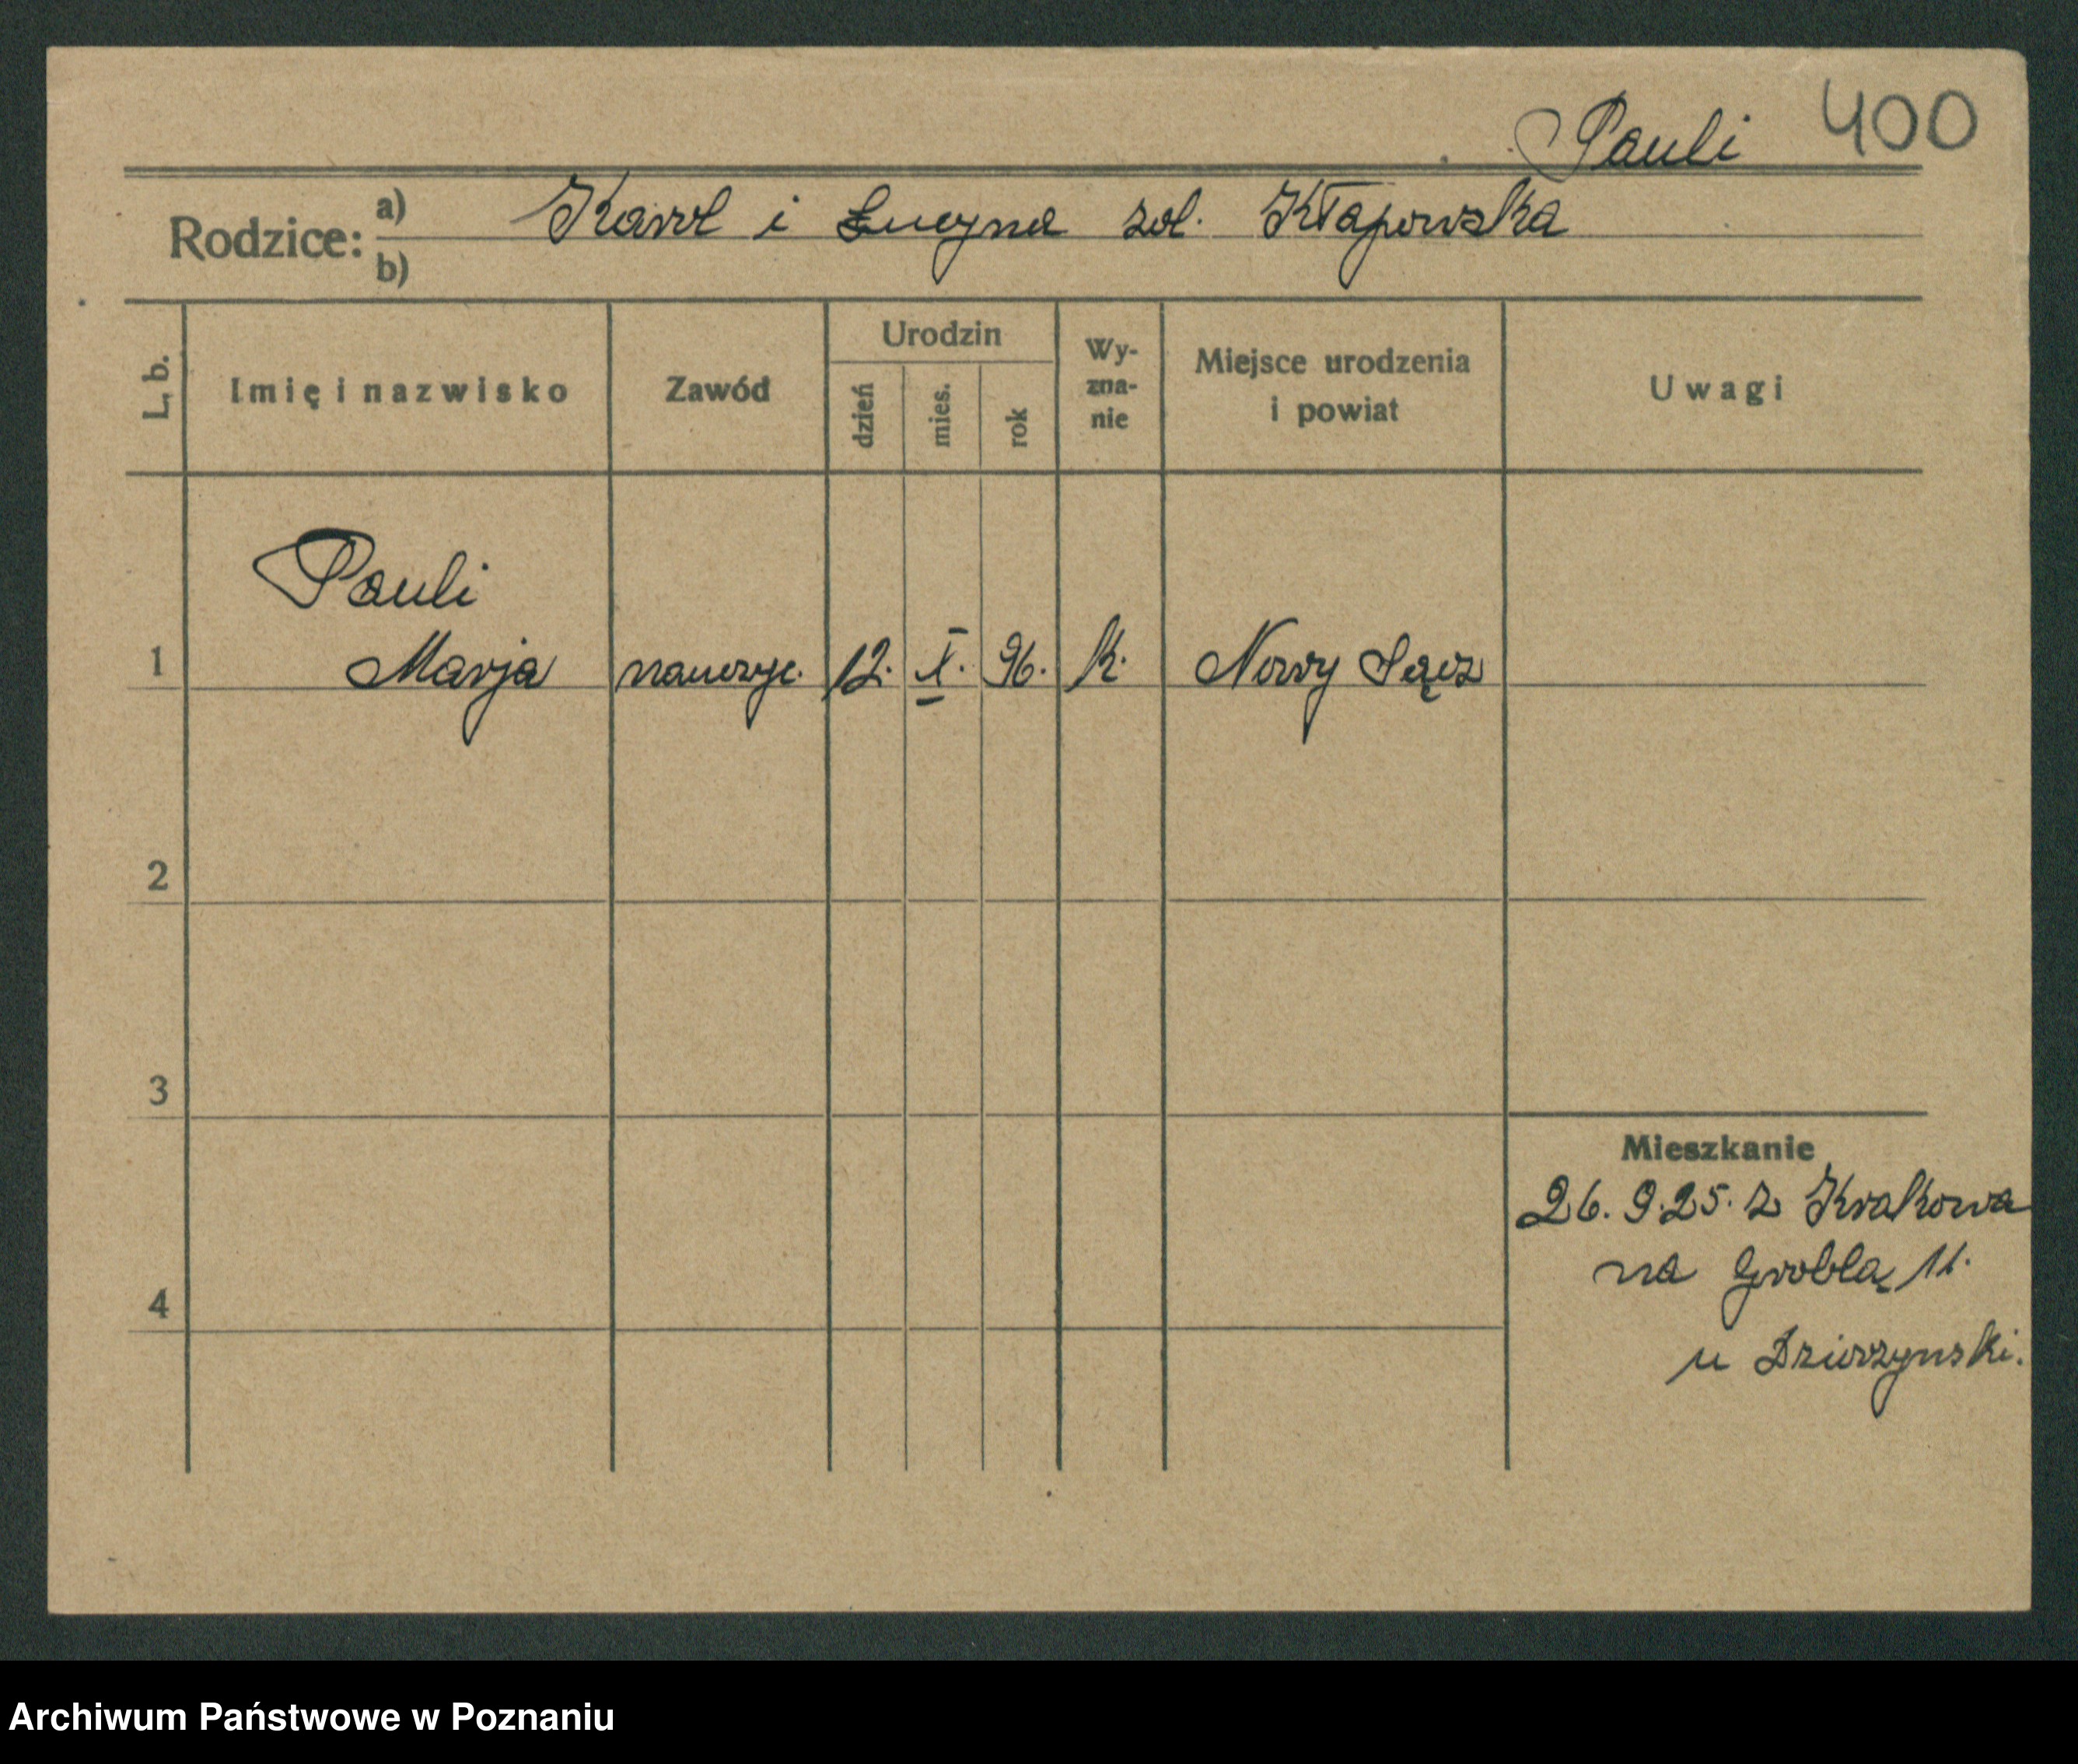 Pauli 400
Rodzice: a) Karol i Lucyna zol. Kłapowska
b)
L. b. Imię i nazwisko Zawód Urodzin Wyznanie Miejsce urodzenia i powiat Uwagi
dzień mies. rok
Pauli
1 Marja nauczyc. 12. X. 96. k. Nowy Sącz
2
3
Mieszkanie
26. 9. 25. z Krakowa
na Groblą 11.
4
u
Archiwum Państwowe w Poznaniu